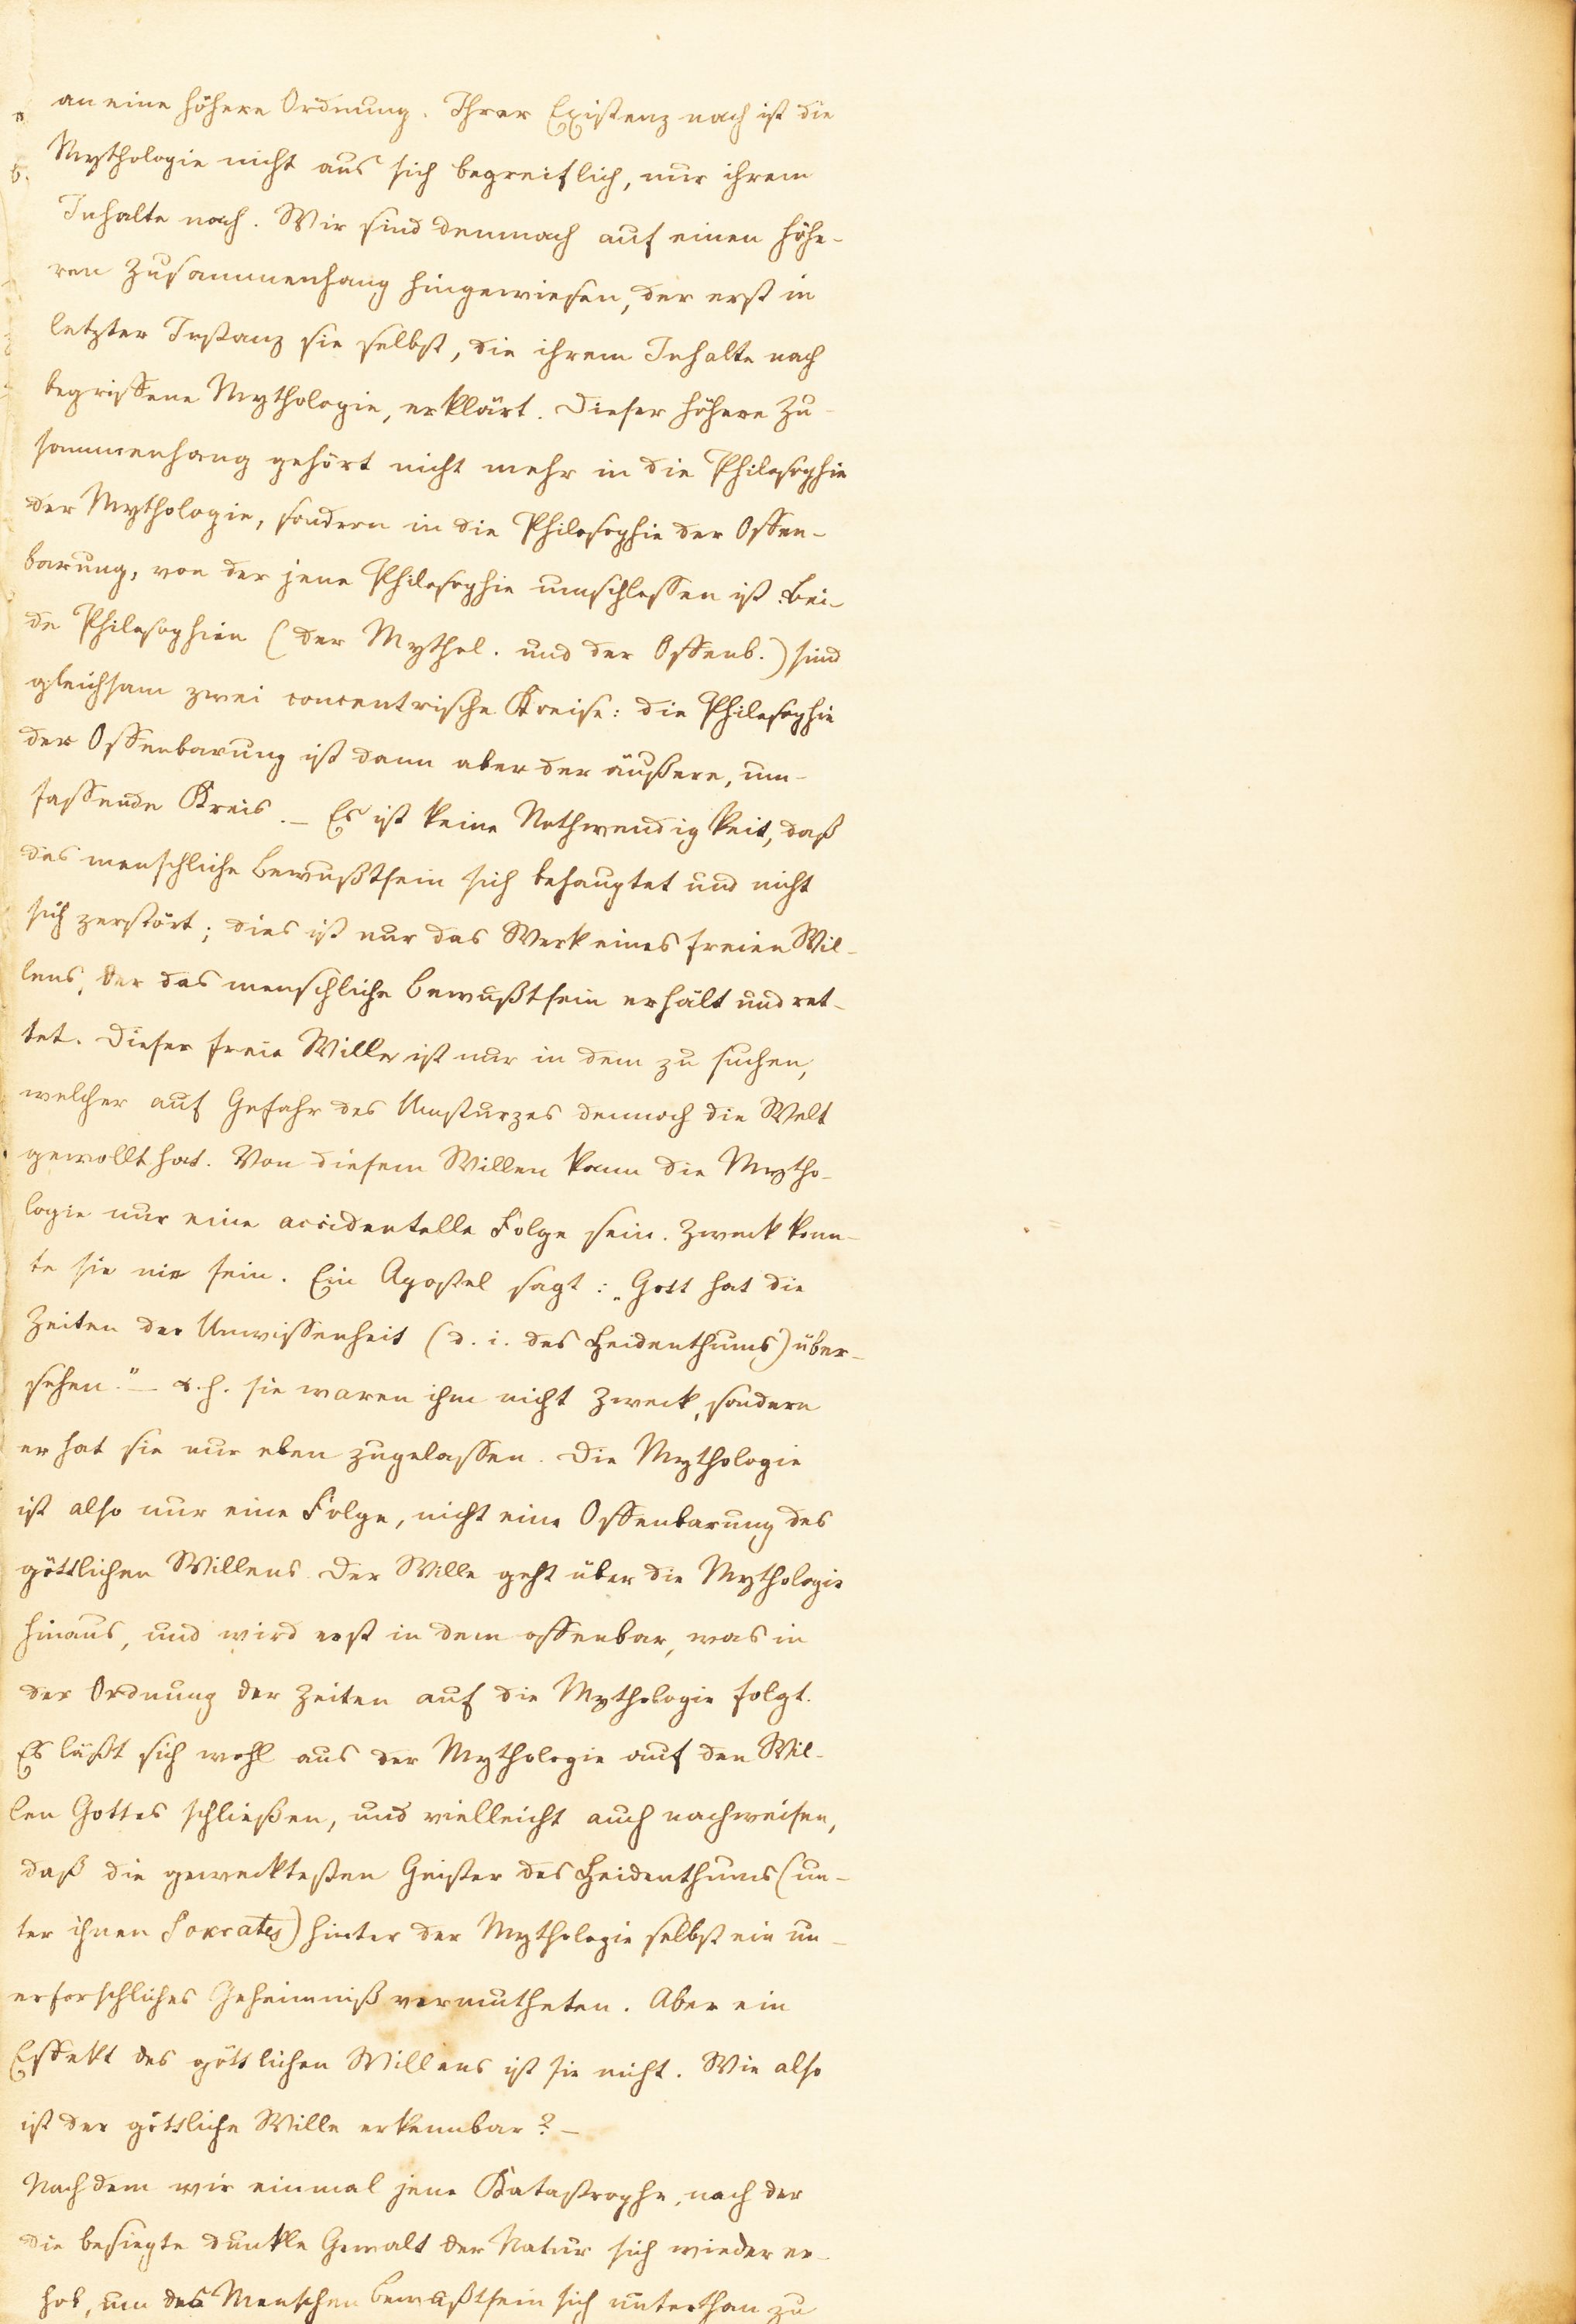 an eine höhere Ordnung. Ihrer Existenz nach ist die
Mythologie nicht aus sich begreiflich, nur ihrem
Inhalte nach. Wir sind demnach auf einen höhe-
ren Zusammenhang hingewiesen, der erst in
letzter Instanz sie selbst, die ihrem Inhalte nach
begriffene Mythologie, erklärt. Dieser höhere Zu-
sammenhang gehört nicht mehr in die Philosophie
der Mythologie, sondern in die Philosophie der Offen-
barung, von der jene Philosophie umschlossen ist. Bei-
de Philosophien (der Mythol. und der Offenb.) sind
gleichsam zwei concentrische Kreise: die Philosophie
der Offenbarung ist dann aber der äußere, um-
fassende Kreis. – Es ist keine Nothwendigkeit, daß
das menschliche Bewußtsein sich behauptet und nicht
sich zerstört; dies ist nur das Werk eines freien Wil-
lens, der das menschliche Bewußtsein erhält und ret-
tet. Dieser freie Wille ist nur in dem zu suchen,
welcher auf Gefahr des Umsturzes dennoch die Welt
gewollt hat. Von diesem Willen kann die Mytho-
logie nur eine accidentelle Folge sein. Zweck konn-
te sie nie sein. Ein Apostel sagt: „Gott hat die
Zeiten der Unwissenheit (d. i. des Heidenthums) über-
sehen." – d. h. sie waren ihm nicht Zweck, sondern
er hat sie nur eben zugelassen. Die Mythologie
ist also nur eine Folge, nicht eine Offenbarung des
göttlichen Willens. Der Wille geht über die Mythologie
hinaus, und wird erst in dem offenbar, was in
der Ordnung der Zeiten auf die Mythologie folgt.
Es läßt sich wohl aus der Mythologie auf den Wil-
len Gottes schließen, und vielleicht auch nachweisen,
daß die gewecktesten Geister des Heidenthums (un-
ter ihnen Socrates) hinter der Mythologie selbst ein un-
erforschliches Geheimniß vermutheten. Aber ein
Effekt des göttlichen Willens ist sie nicht. Wie also
ist der göttliche Wille erkennbar? –
Nachdem wir einmal jene Katastrophe, nach der
die besiegte dunkle Gewalt der Natur sich wieder er-
hob, um des Menschen Bewußtsein sich unterthan zu